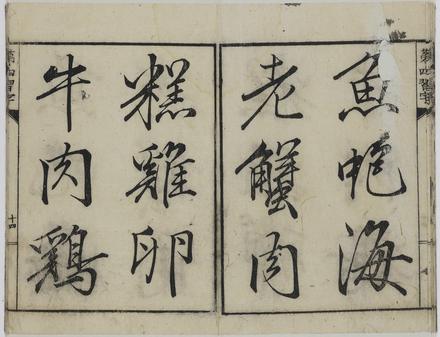 第四習字
魚蚫海
老蟹肉
糕雞卵
牛肉鶏
第四習字
十四